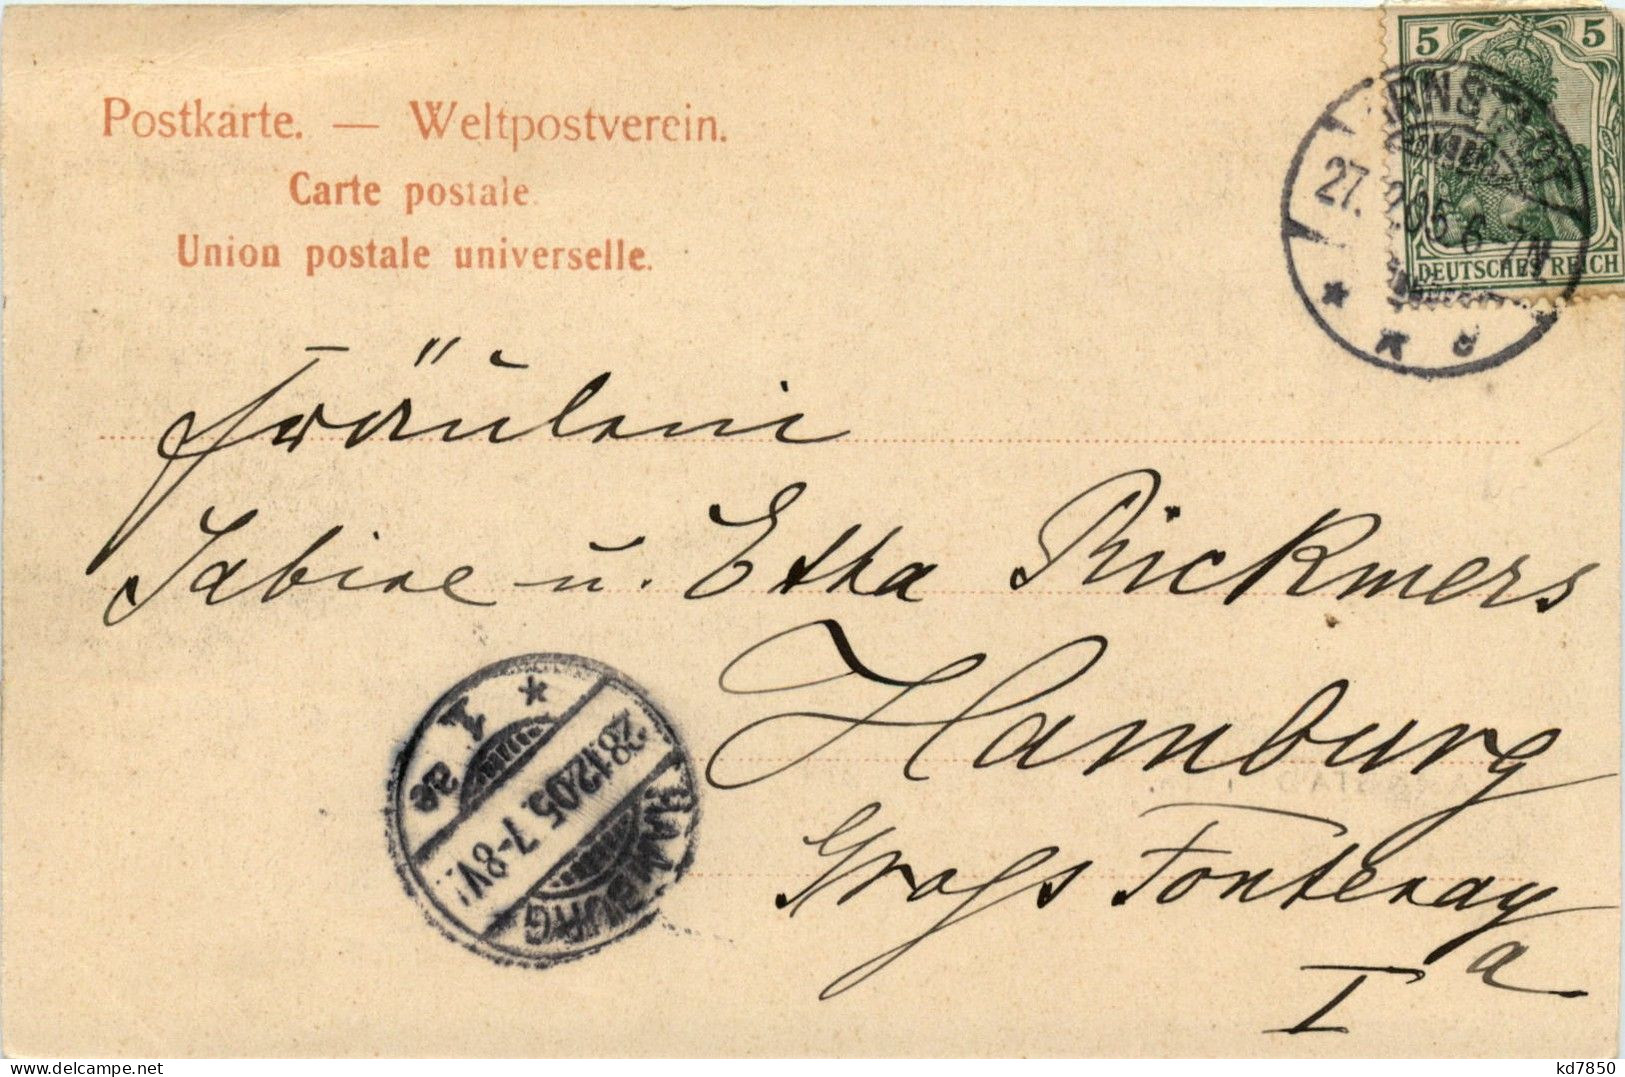 5 5
DEUTSCHES REICH
ARNSTADT
27. 12.05 6-7N
* *
Postkarte. — Weltpostverein.
Carte postale.
Union postale universelle.
Fräulein
Sabine u. Etha Rickmers
Hamburg
Gross Fontenay
a
I
* 1 ae
28.12.05. 7-8V.
HAMBURG
www.delcampe.net
kd7850